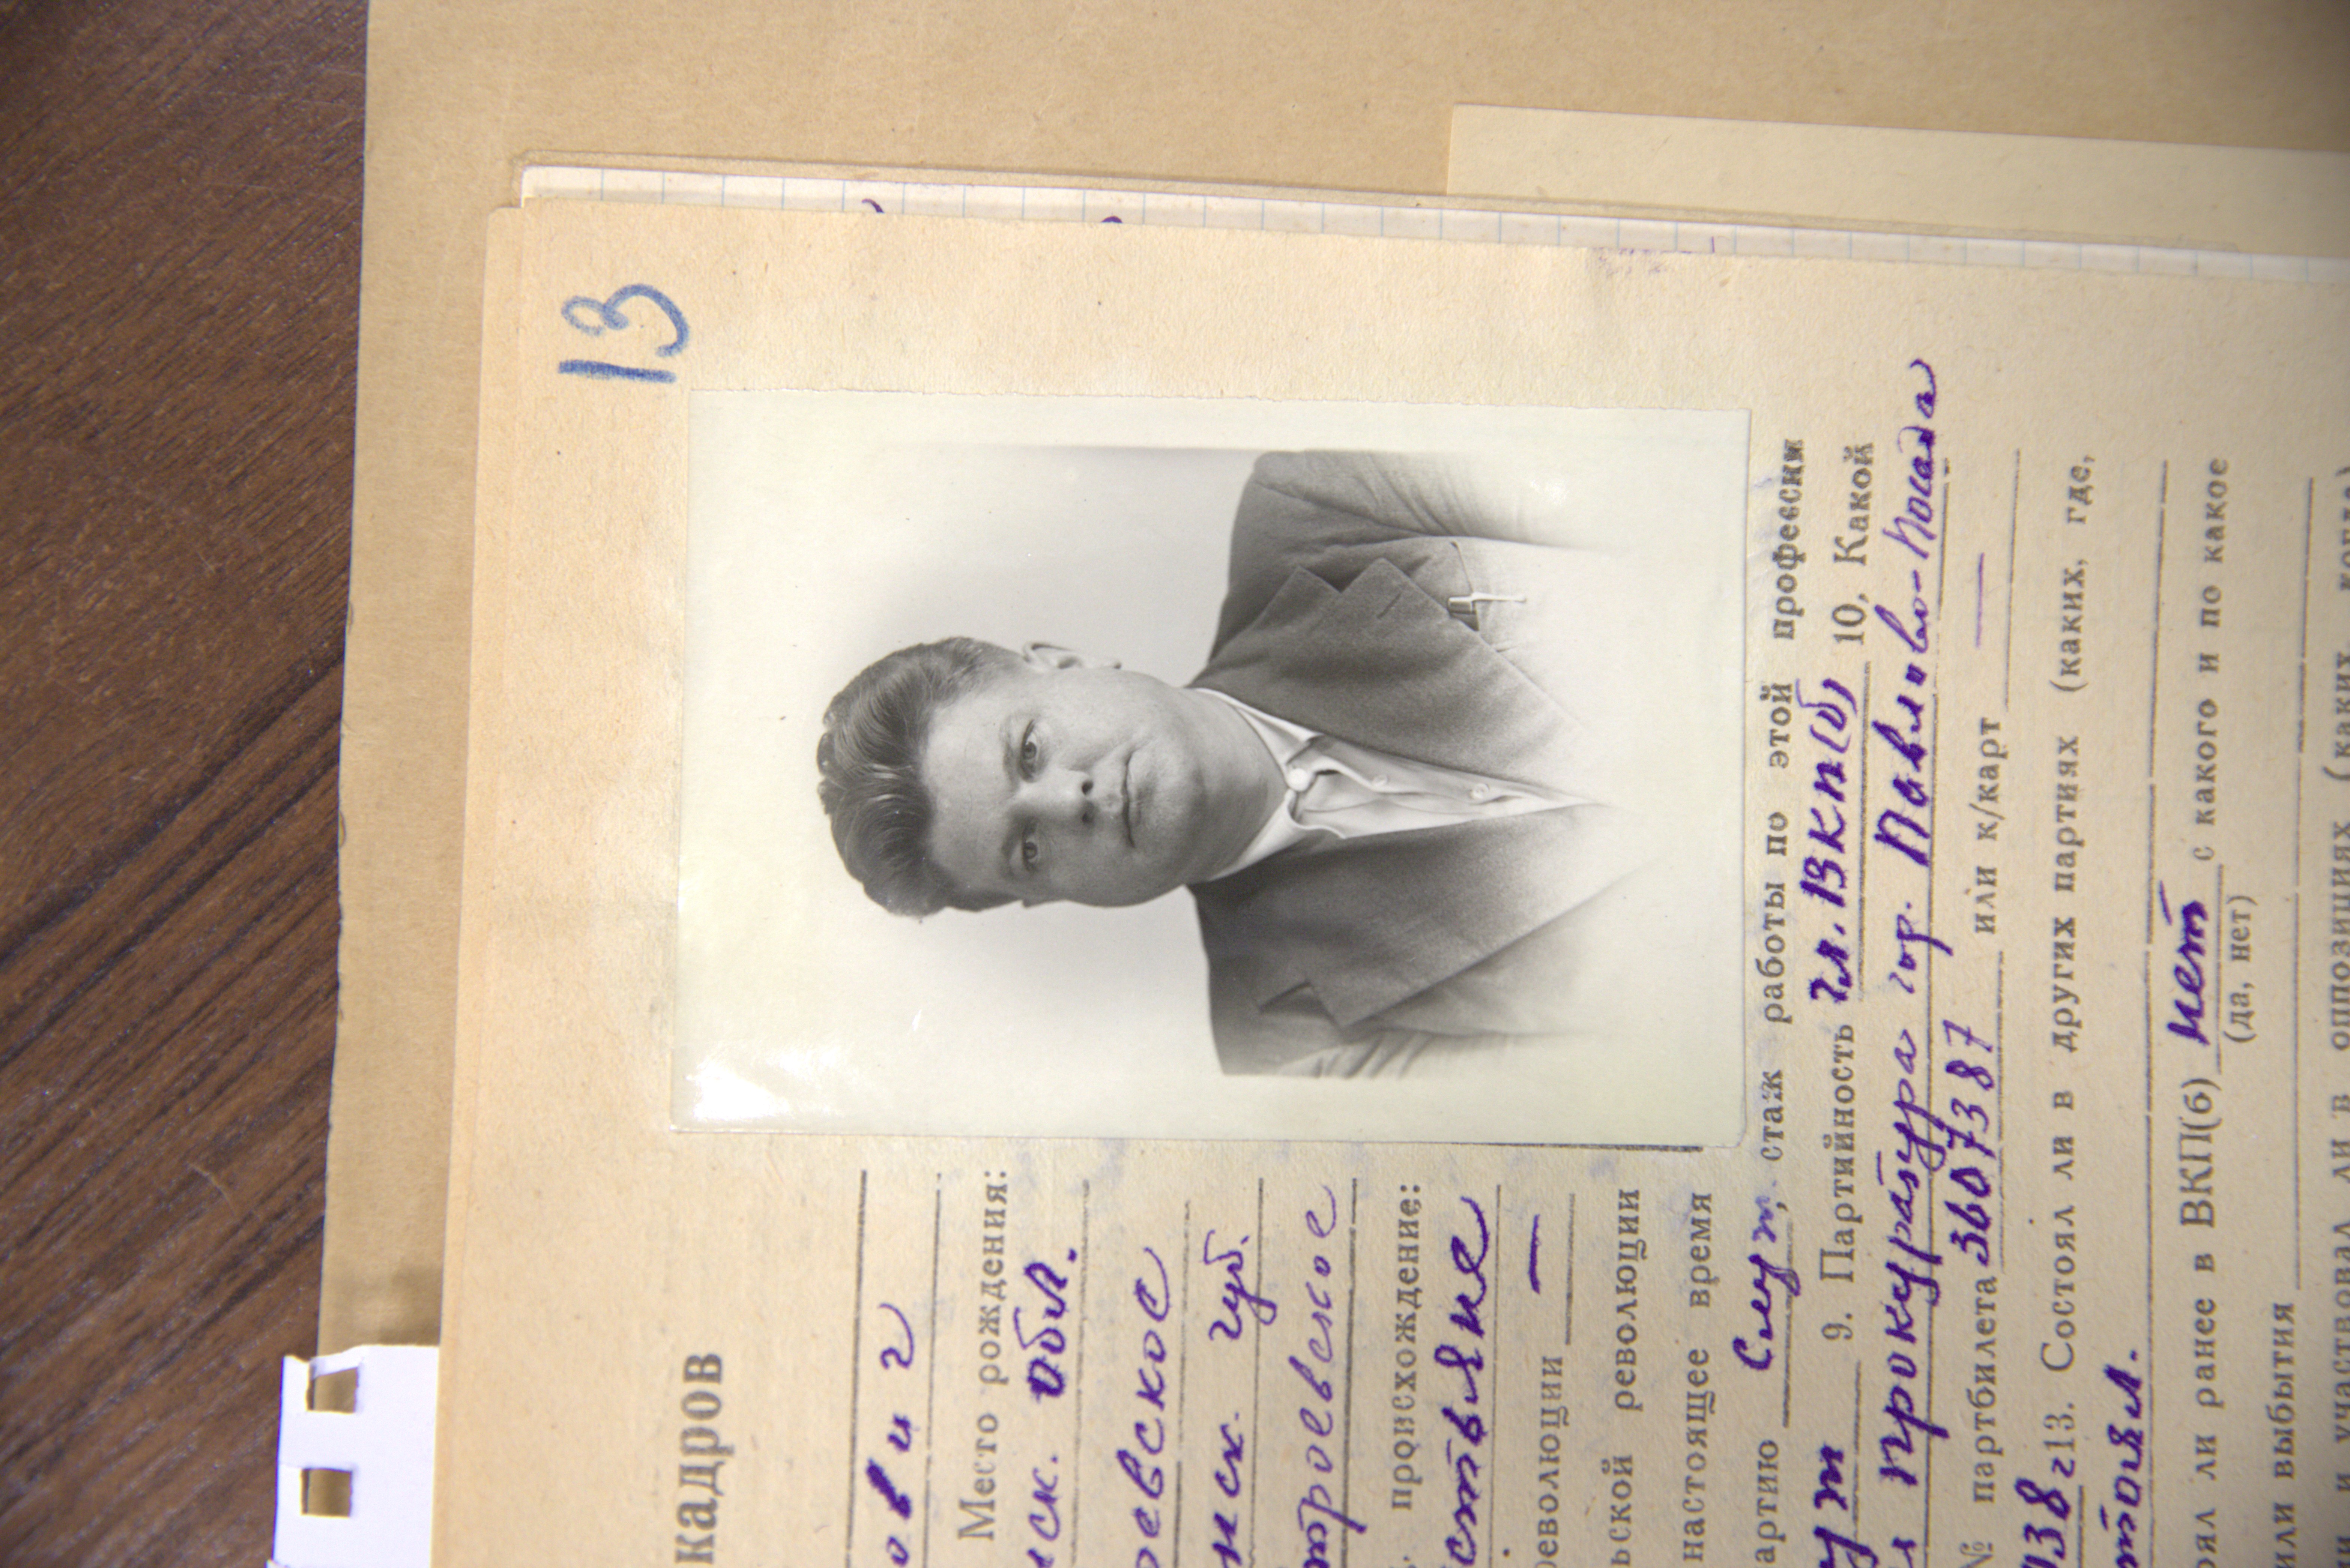 13
кадров
ович
Место рождения:
ск. обл.
оевское
нск. губ.
тровское
происхождение:
стьяне
революции —
ьской революции
настоящее время
артию служ, стаж работы по этой профессии
9. Партийность чл. ВКП(б) 10. Какой
прокуратура гор. Павлово-Посада
№ партбилета 3607387 или к/карт —
38 г13. Состоял ли в других партиях (каких, где,
тоял.
ял ли ранее в ВКП(б) нет с какого и по какое
(да, нет)
или выбытия
и участвовал ли в оппозициях (каких, когда)